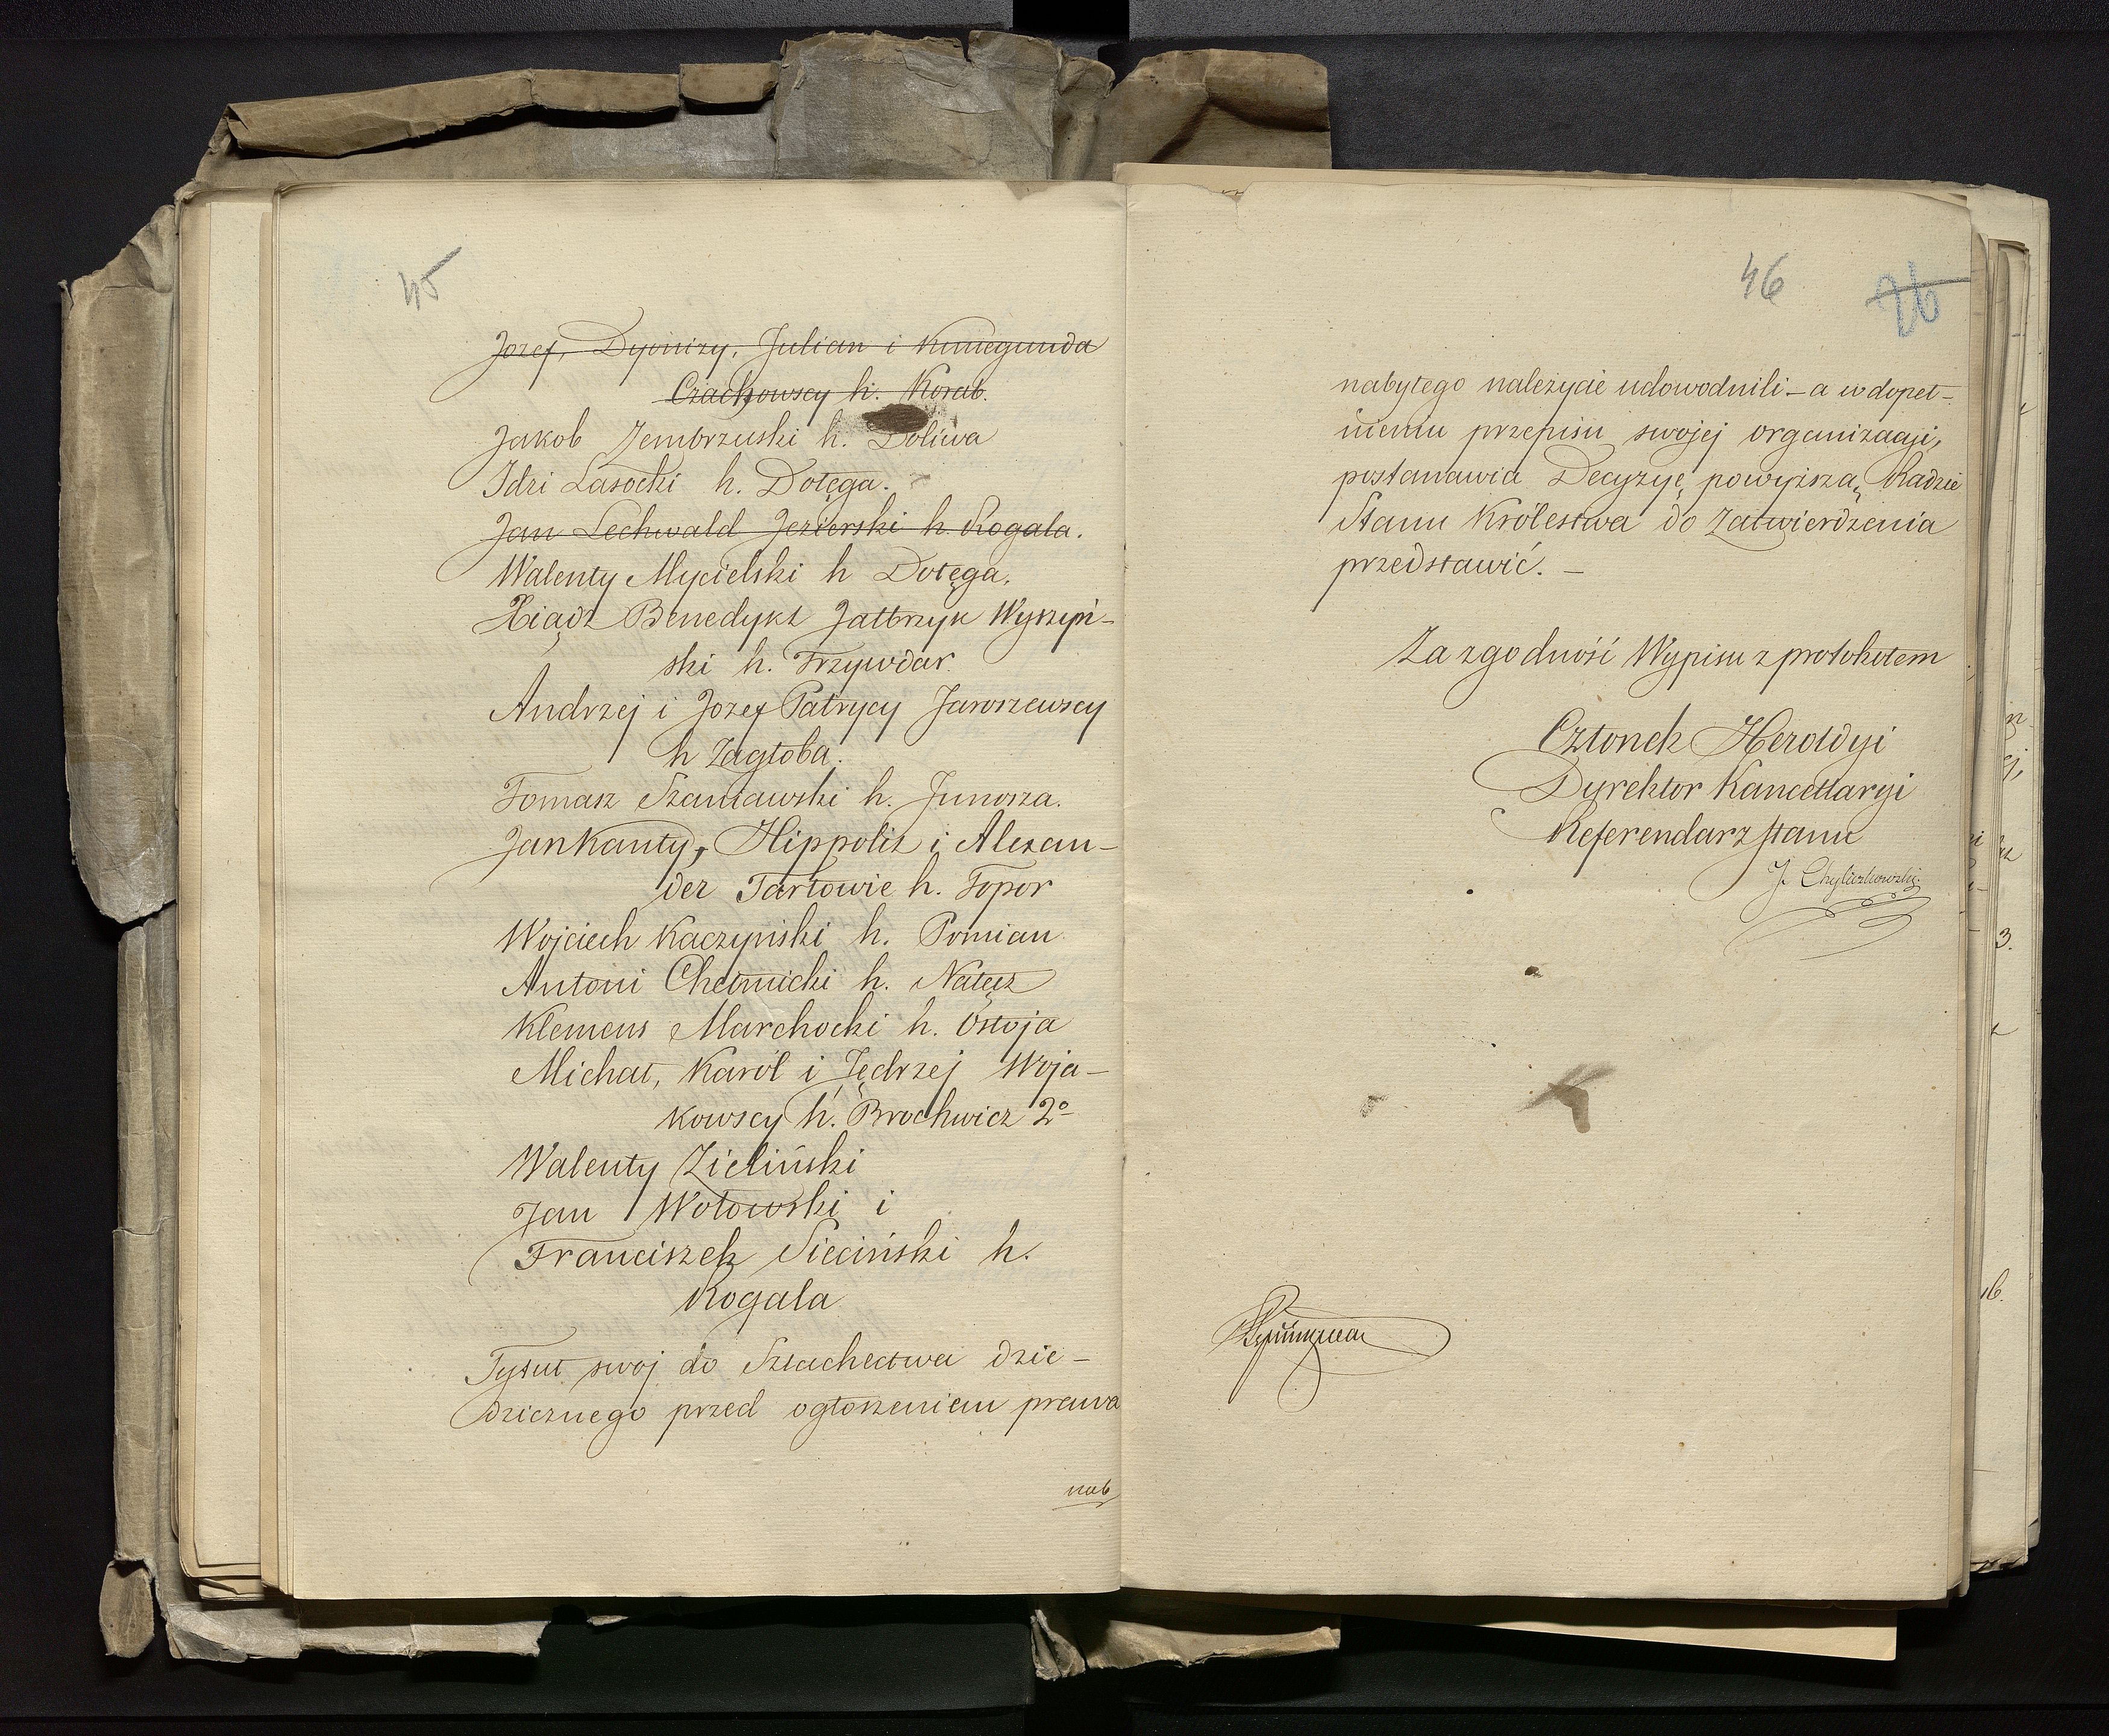 45
Jozef, Dyonizy, Julian i Kunegunda
Czachowscy h. Korab.
Jakob Zembrzuski h. Doliwa
Idzi Lasocki h. Dołęga.
Jan Lechwald Jezierski h. Rogala.
Walenty Mycielski h Dołęga.
Xiądz Benedykt Jałbrzyk Wyszyń-
ski h. Trzywdar
Andrzej i Jozef Patrycy Jaroszewscy
h Zagłoba.
Tomasz Szaniawski h. Junosza.
Jan Kanty, Hippolit i Alexan-
der Tarłowie h. Topor
Wojciech Kaczyński h. Pomian
Antoni Chełmicki h. Nałęcz
Klemens Marchocki h. Ostoja
Michał, Karól i Jędrzej Woja-
kowscy h. Brochwicz 2º
Walenty Zieliński
Jan Wołowski i
Franciszek Sieciński h.
Rogala
Tytuł swoj do Szlachectwa dzie-
dzicznego przed ogłoszeniem prawa
nab
46
26
nabytego należycie udowodnili – a w dopeł-
nieniu przepisu swojej organizacyi,
postanawia Decyzyę powyższą, Radzie
Stanu Królestwa do Zatwierdzenia
przedstawić. –
Za zgodność Wypisu z protokołem
Członek Heroldyi
Dyrektor Kancellaryi
Referendarz Stanu
J. Chyliczkowski